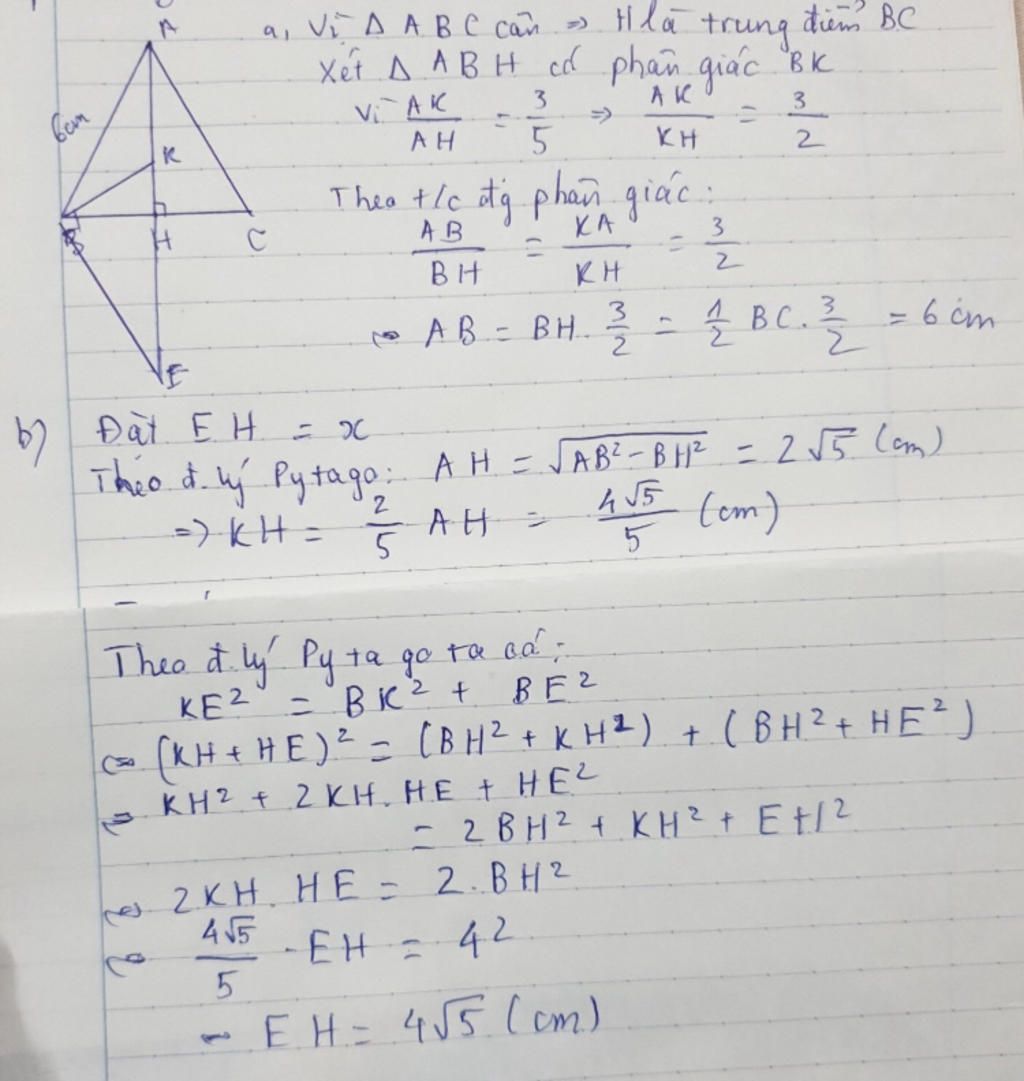 A
6cm
K
B
H
C
E
a, Vì Δ ABC cân ⇒ H là trung điểm BC
Xét Δ ABH có phân giác BK
Vì AK/AH = 3/5 ⇒ AK/KH = 3/2
Theo t/c đg phân giác:
AB/BH = KA/KH = 3/2
⇔ AB = BH. 3/2 = 1/2 BC. 3/2 = 6 cm
b) Đặt EH = x
Theo đ.lý Pytago: AH = √(AB² - BH²) = 2√5 (cm)
⇒ KH = 2/5 AH = 4√5/5 (cm)
Theo đ.lý Pytago ta có:
KE² = BK² + BE²
⇔ (KH + HE)² = (BH² + KH²) + (BH² + HE²)
⇔ KH² + 2KH.HE + HE²
= 2BH² + KH² + EH²
⇔ 2KH.HE = 2.BH²
⇔ 4√5/5 . EH = 4²
- EH = 4√5 (cm)